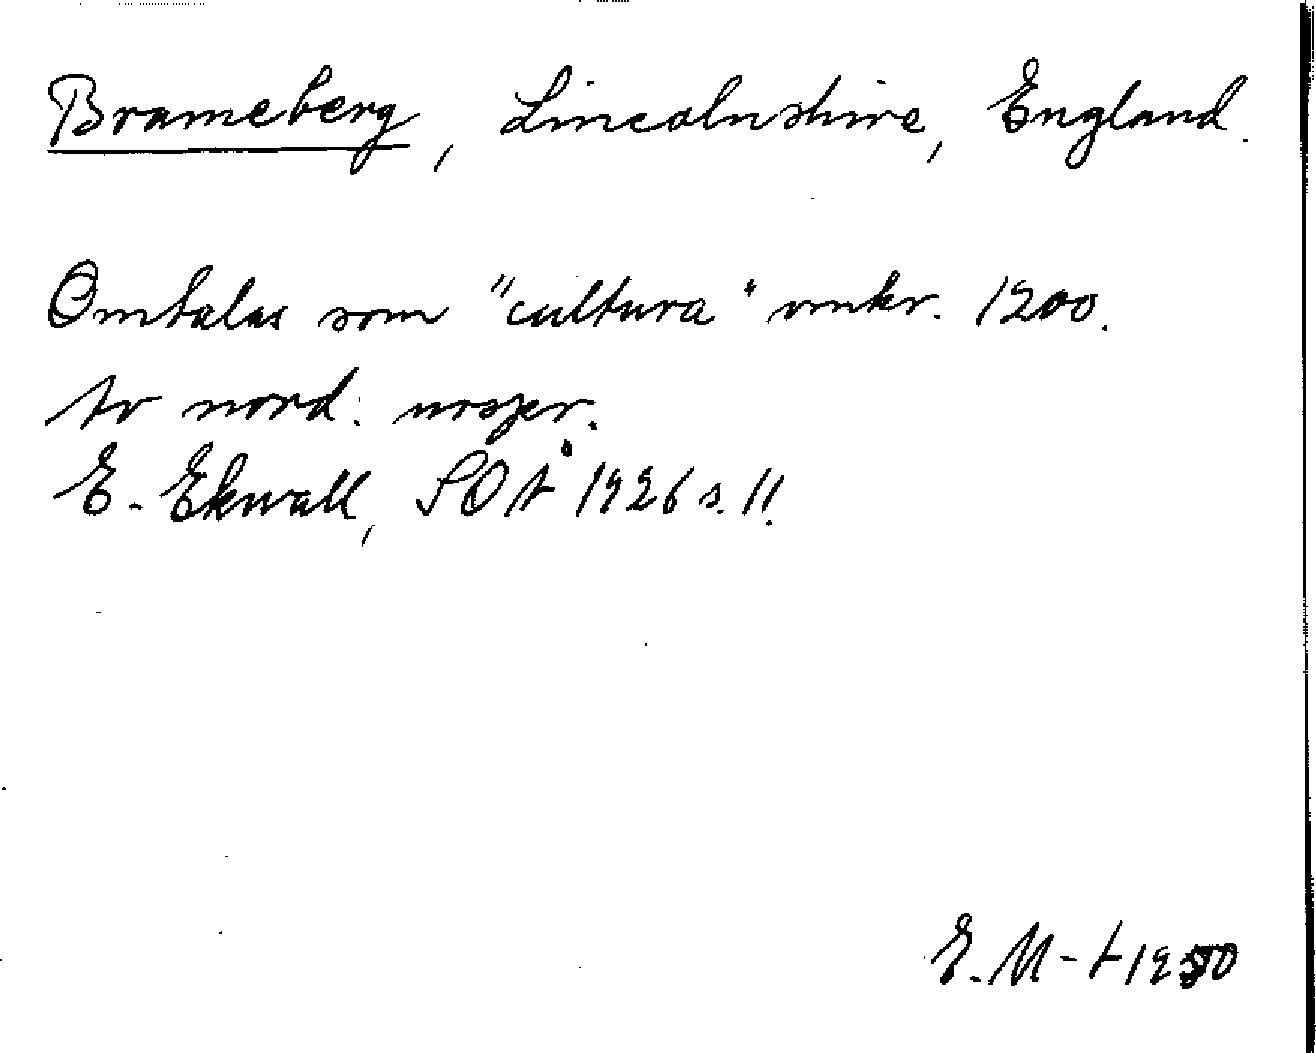 Brameberg, Lincolnshire, England.
Omtalas som "cultura" omkr. 1200.
Av nord. urspr.
E. Ekwall, SOÅ 1926 s. 11.
E. M-t 1950